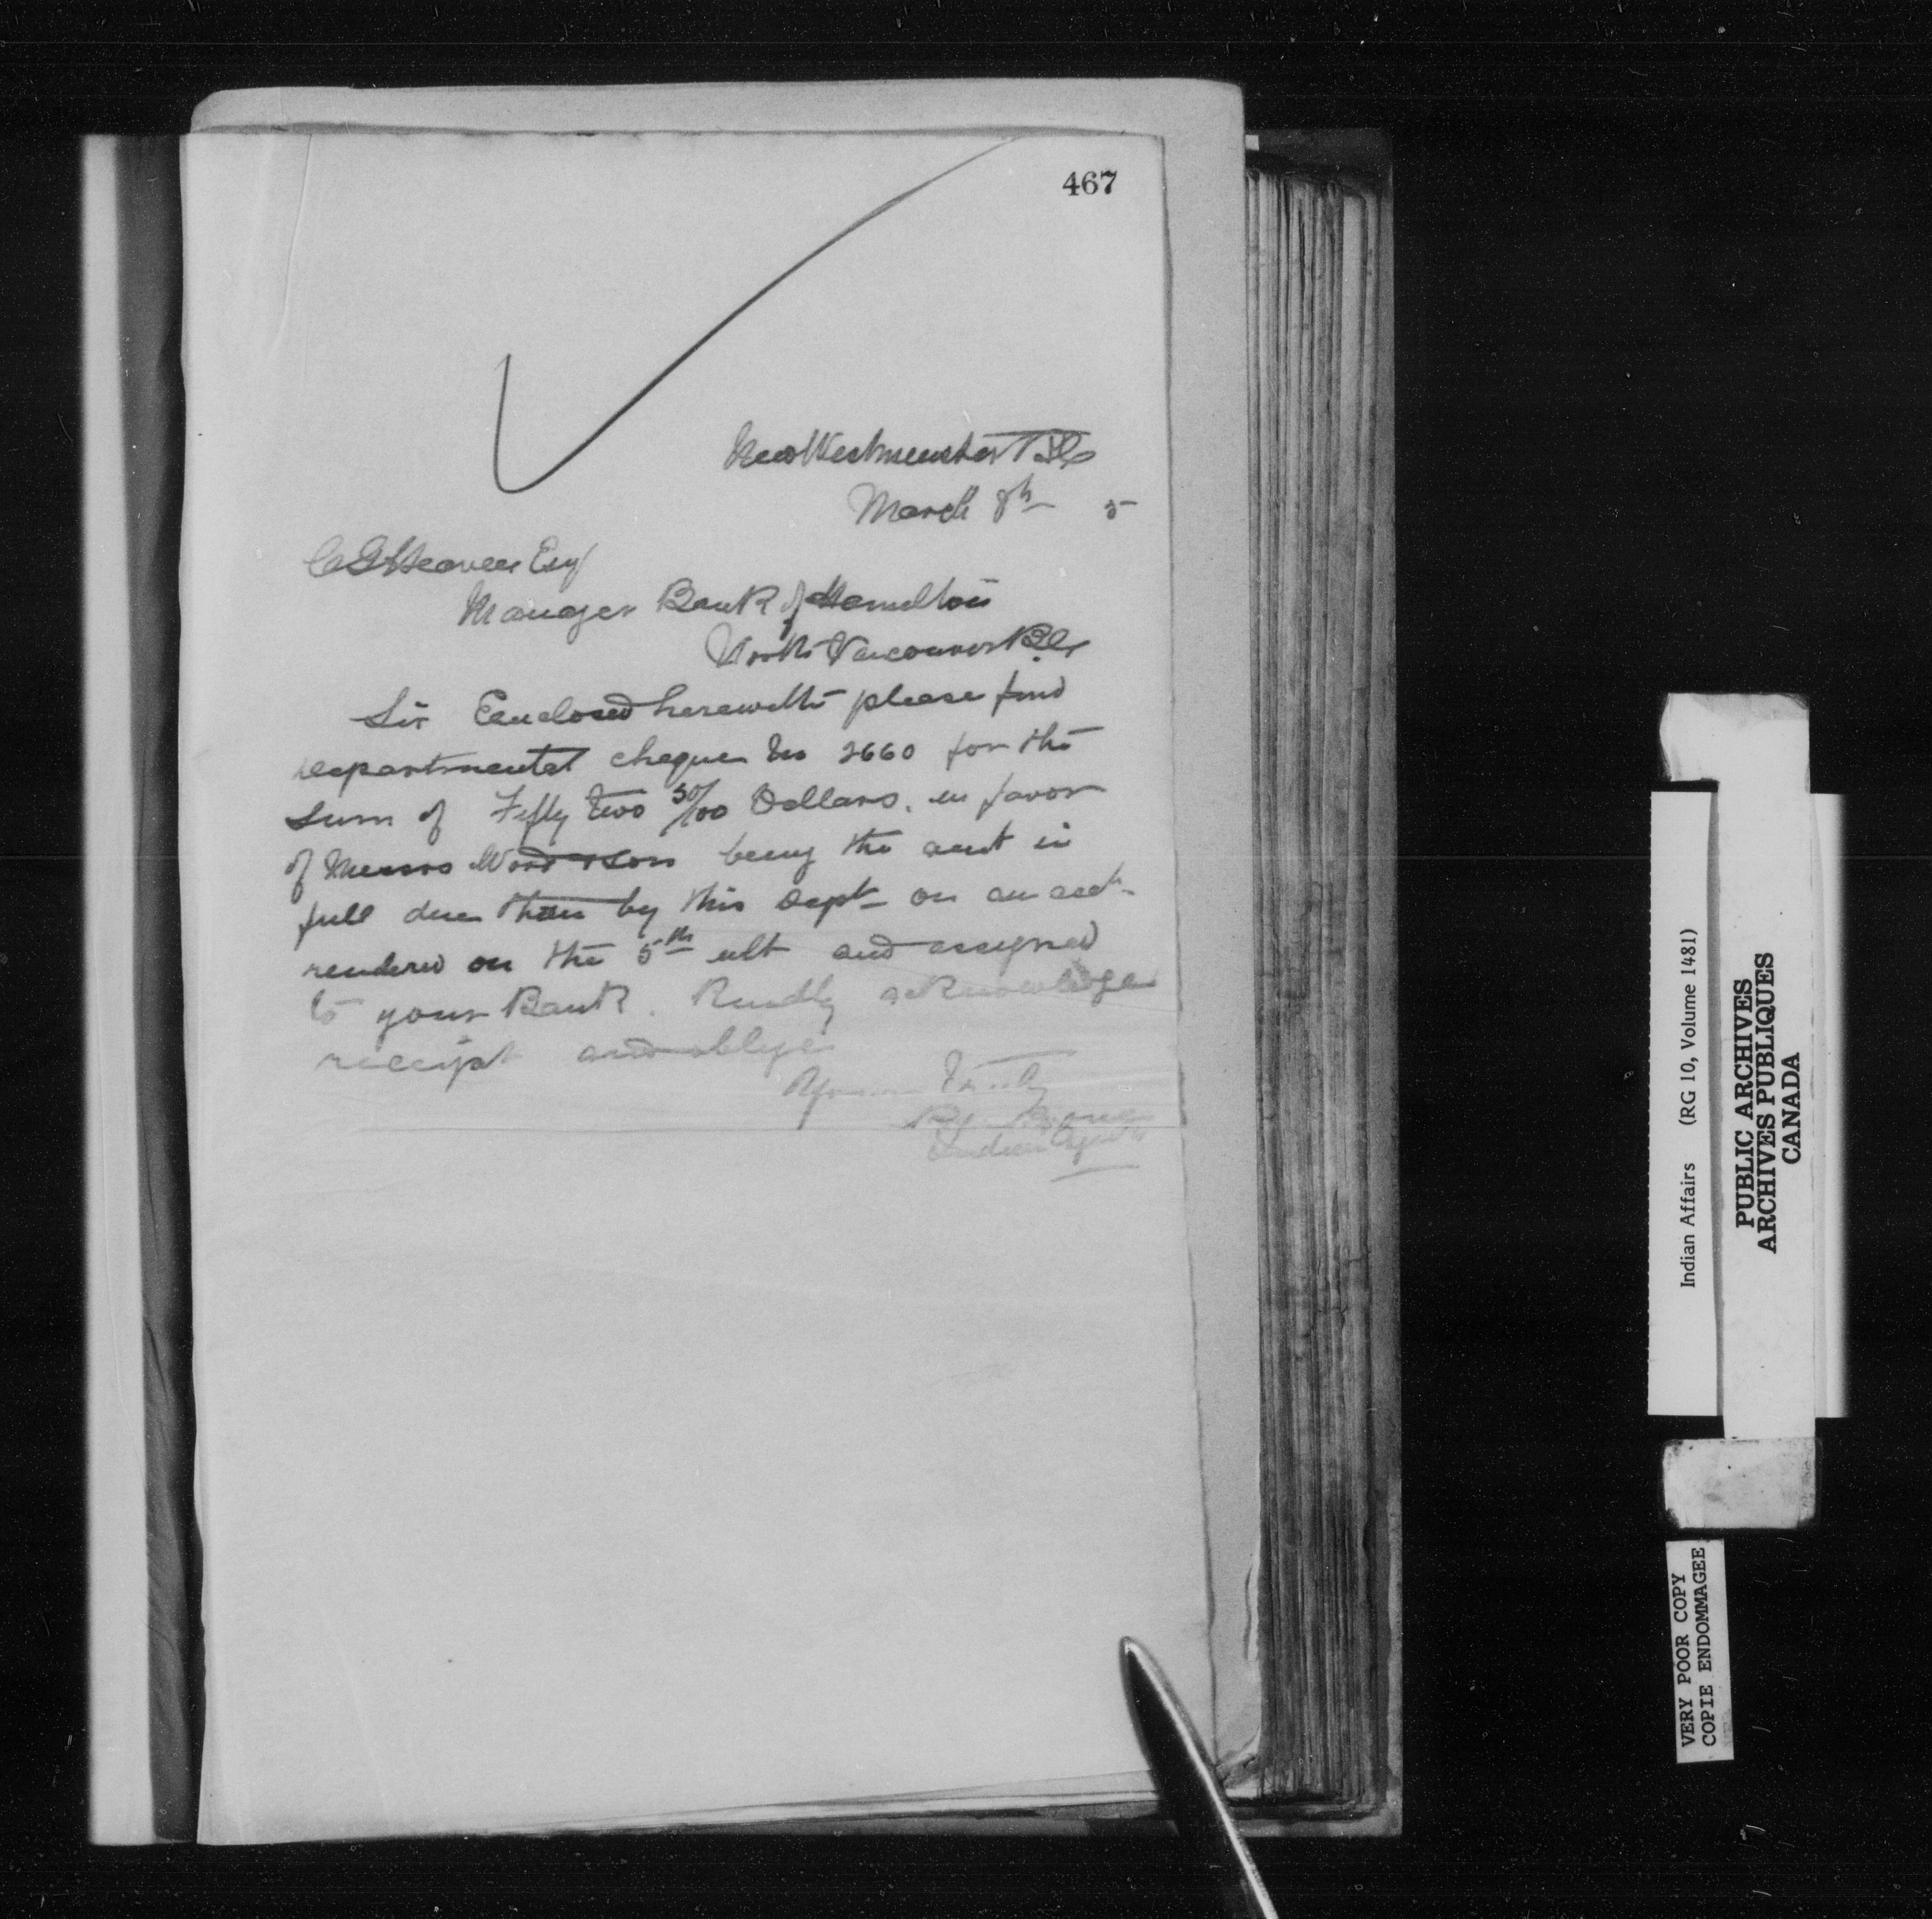 467
New Westminster BC
March 8th 5
Esq
Manager Bank of Hamilton
North Vancouver BC
Sir Enclosed herewith please find
departmental cheque No 2660 for the
sum of Fifty two 50/100 Dollars. in favor
of Messrs Wood & Son being the amt in
full due them by this Dept on an acct
rendered on the 5th ult and assigned
to your Bank. Kindly acknowledge
receipt and oblige
Yours Truly
Indian Agent
Indian Affairs (RG 10, Volume 1481)
PUBLIC ARCHIVES
ARCHIVES PUBLIQUES
CANADA
VERY POOR COPY
COPIE ENDOMMAGEE